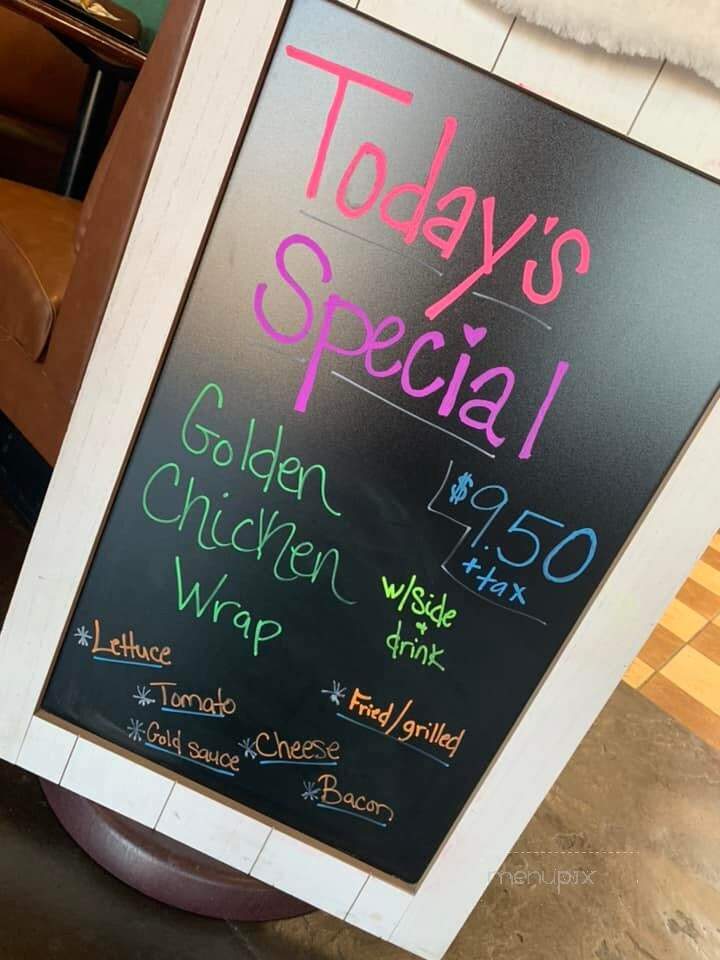 Today's
Special
Golden
Chicken
Wrap
$9.50
+ tax
w/side
+
drink
*Lettuce
*Tomato
*Fried/grilled
*Gold sauce *Cheese
*Bacon
menupix